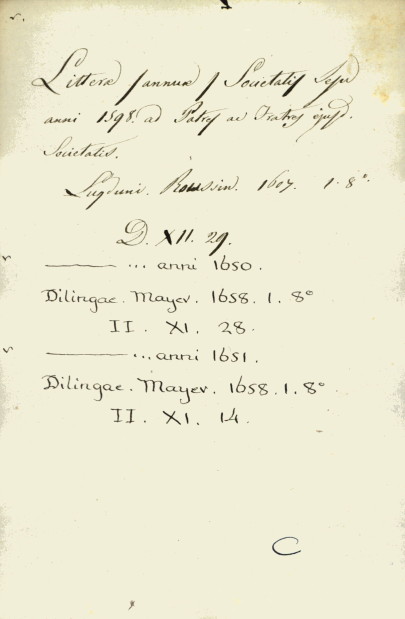 Litteræ annuæ Societatis Jesu
anni 1598. ad Patres ac Fratres ejusd.
Societatis.
Lugduni. Roussin. 1607. 1. 8°.
D. XII. 29.
——— ... anni 1650.
Dilingae. Mayer. 1658. 1. 8°
II. XI. 28.
——— ... anni 1651.
Dilingae. Mayer. 1658. 1. 8°
II. XI. 14.
C